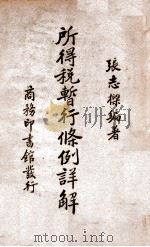 張志樑編著
所得稅暫行條例詳解
商務印書館發行